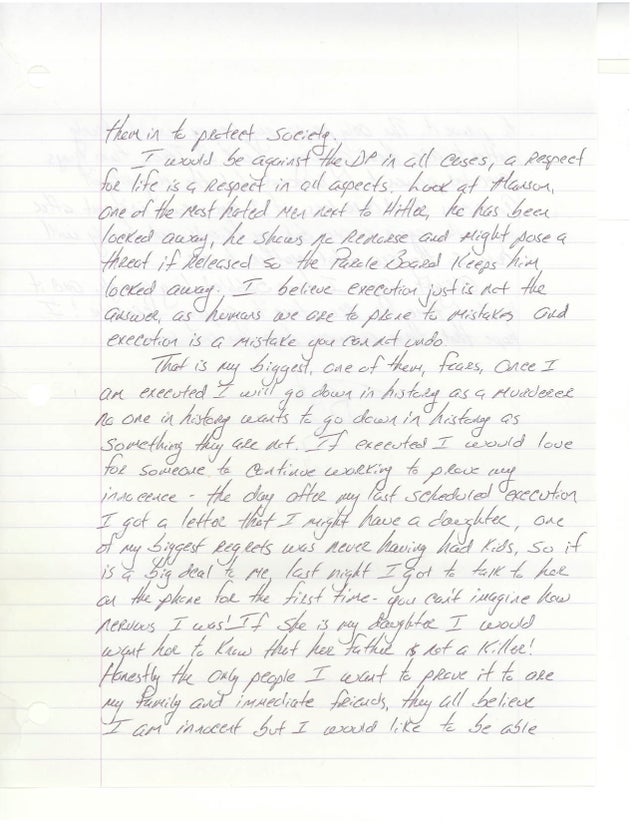 them in to protect society.
I would be against the DP in all cases, a respect
for life is a respect in all aspects. Look at Manson,
one of the most hated men next to Hitler, he has been
locked away, he shows no remorse and might pose a
threat if released so the Parole Board keeps him
locked away. I believe execution just is not the
answer, as humans we are to prone to mistakes and
execution is a mistake you can not undo
That is my biggest, one of them, fears, once I
am executed I will go down in history as a murderer
no one in history wants to go down in history as
something they are not. If executed I would love
for someone to continue working to prove my
innocence - the day after my last scheduled execution
I got a letter that I might have a daughter, one
of my biggest regrets was never having had kids, so it
is a big deal to me, last night I got to talk to her
on the phone for the first time - you can't imagine how
nervous I was! If she is my daughter I would
want her to know that her father is not a killer!
Honestly the only people I want to prove it to are
my family and immediate friends, they all believe
I am innocent but I would like to be able